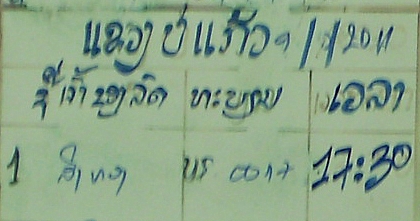 ແຂວງ ບໍ່ແກ້ວ 9/ /2011
ຊື່ເຈົ້າຂອງລົດ ທະບຽນ ເວລາ
1 ສີທອງ ບຣ 0017 17:30